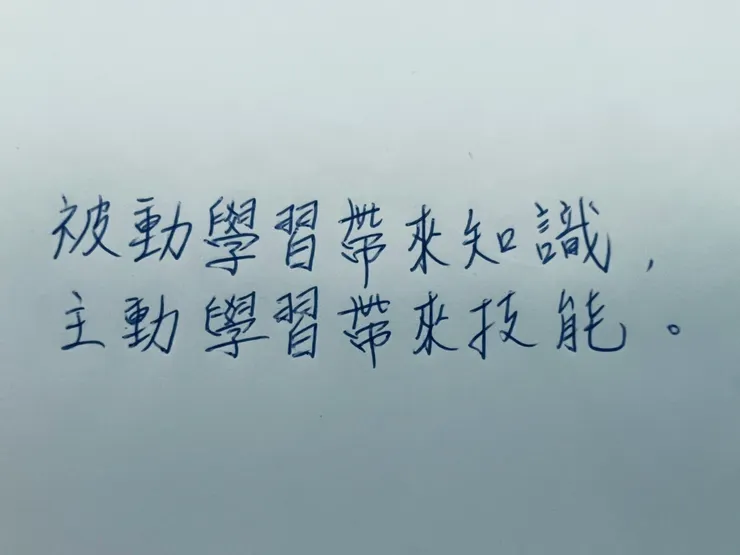 被動學習帶來知識，
主動學習帶來技能。